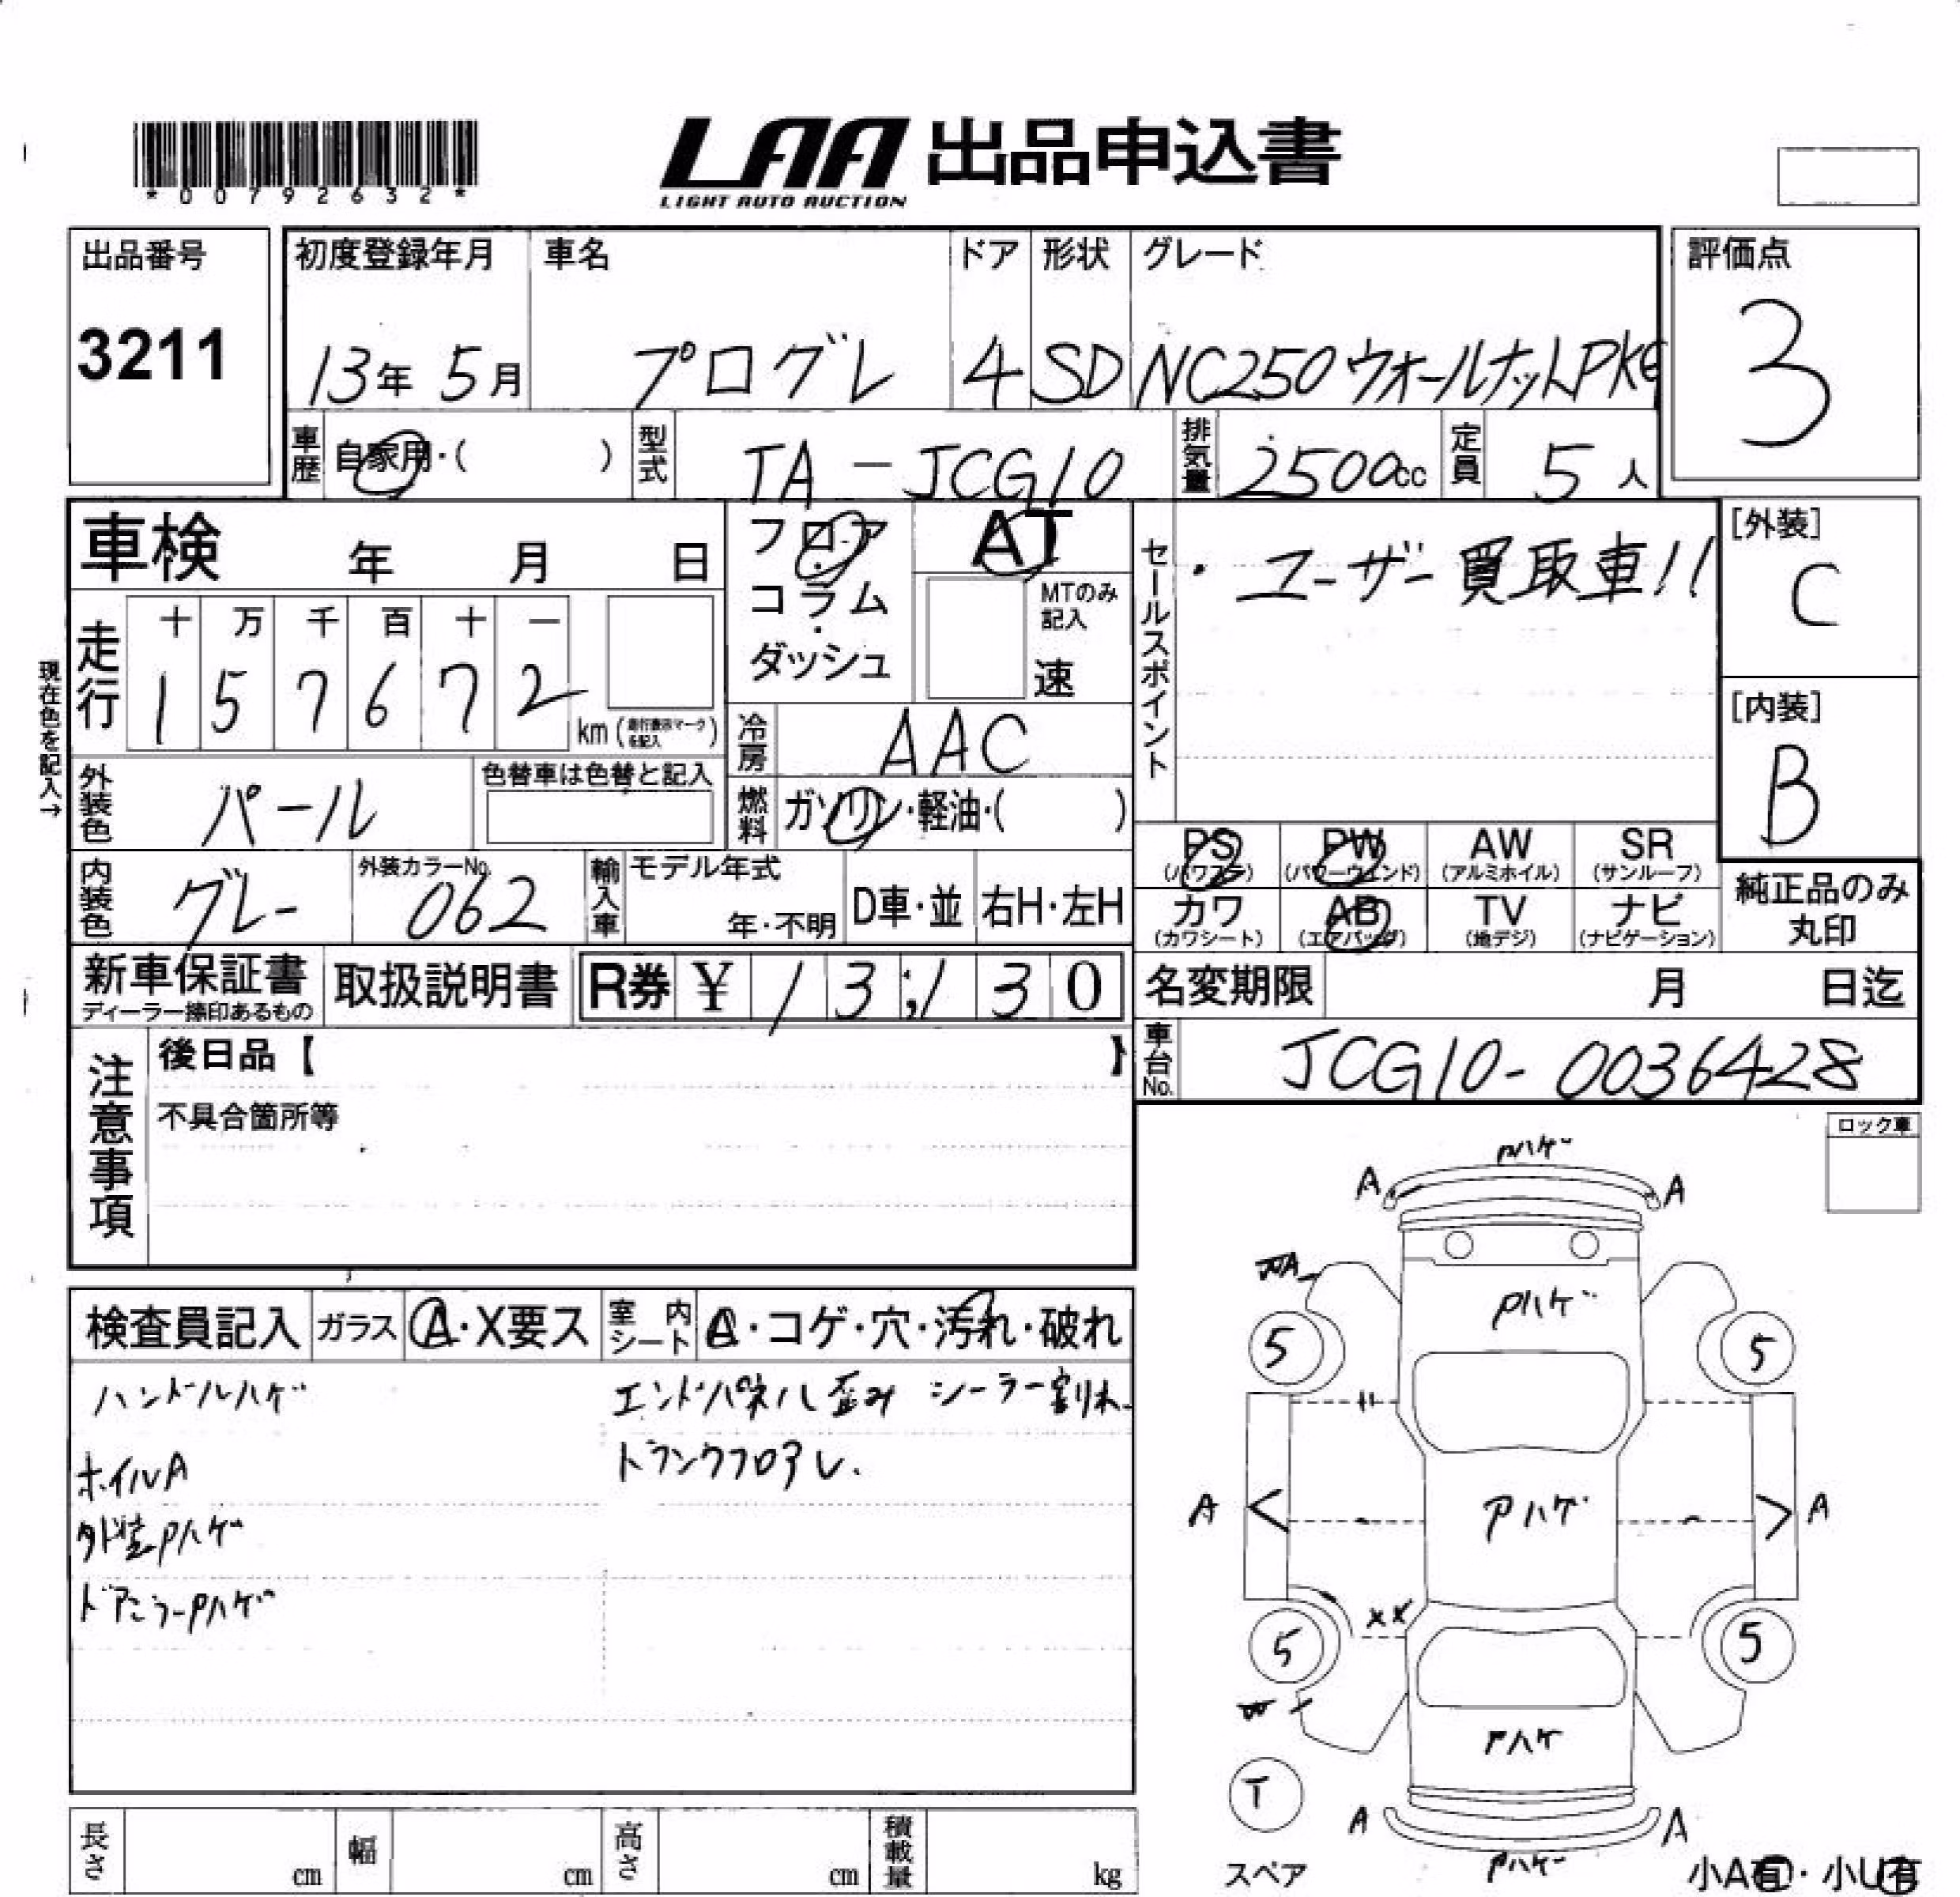 *00792632*
LAA 出品申込書
LIGHT AUTO AUCTION
出品番号
3211
初度登録年月 車名 ドア 形状 グレード
13年 5月 プログレ 4 SD NC250ウォールナットPKG
評価点
3
車歴 自家用・( ) 型式 TA-JCG10 排気量 2500cc 定員 5人
車検 年 月 日
フロア・コラム・ダッシュ
AT
MTのみ記入
速
セールスポイント
・ユーザー買取車!!
[外装]
C
[内装]
B
現在色を記入→
走行 十 万 千 百 十 一
1 5 7 6 7 2 km (走行表示マークを記入)
冷房 AAC
外装色 パール 色替車は色替と記入
燃料 ガソリン・軽油・( )
内装色 グレー 外装カラーNo. 062
輸入車 モデル年式
年・不明 D車・並 右H・左H
PS (パワステ) PW (パワーウィンド) AW (アルミホイル) SR (サンルーフ)
カワ (カワシート) AB (エアバッグ) TV (地デジ) ナビ (ナビゲーション)
純正品のみ丸印
新車保証書
ディーラー捺印あるもの
取扱説明書 R券 ¥ 13,130
名変期限 月 日迄
車台No. JCG10-0036428
注意事項
後日品【 】
不具合箇所等
ロック車
検査員記入 ガラス A・X要ス 室内シート A・コゲ・穴・汚れ・破れ
ハンドルハゲ
ホイルA
外装Pハゲ
ドアミラーPハゲ
エンドパネル歪み シーラー割れ
トランクフロアレ.
Pハゲ
A A
Pハゲ
5 5
A < Pハゲ > A
××
5 5
Pハゲ
T
スペア
A A
Pハゲ
小A有・小U有
長さ cm 幅 cm 高さ cm 積載量 kg